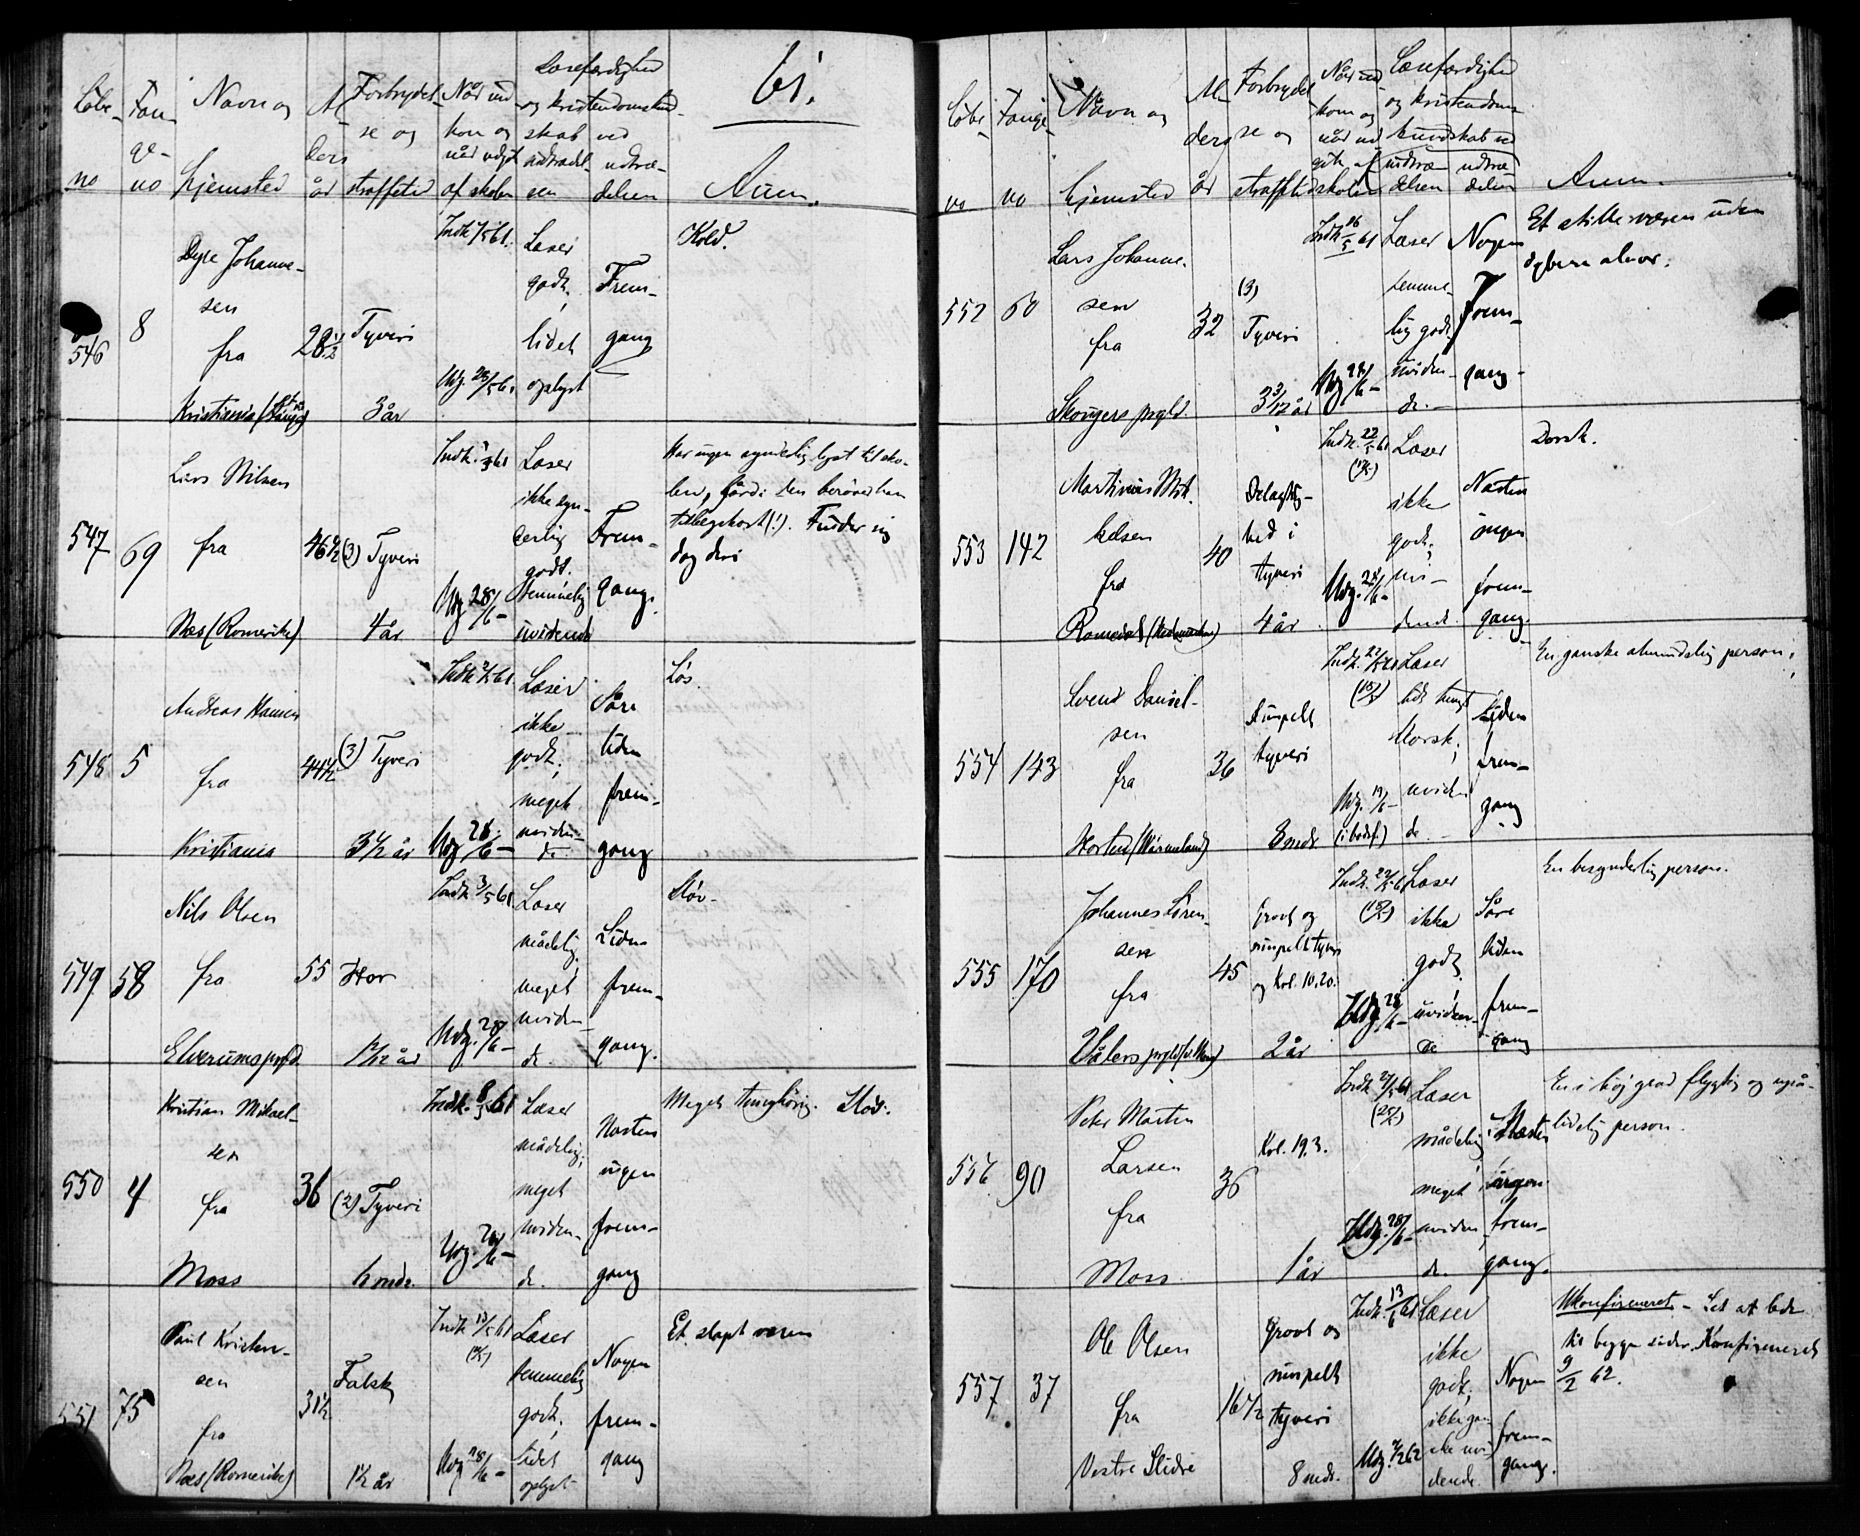 61.
Løbe-
no
Fan-
ge-
no
Navn og
hjemsted
Al-
ders
år
Forbrydel-
se og
straffetid
Når ind
kom og
når udgt
af skolen
Læsefærdighed
og kristendomskund-
skab ved
indtrædel-
sen
udtræ-
delsen
Anm.
546
8
Johanne-
sen
fra
Kristiania
28 1/2
Tyveri
3 år
Indk. 1/5 61.
Udg. 28/5 61.
Læser
godt,
lidet
oplyst
Frem-
gang
Kold.
547
69
Lars Nilsen
fra
Næs (Romerike)
46 1/2
(3) Tyveri
4 år
Indk. 1/5 61
Udg 28/6 –
Læser
ikke syn-
derlig
godt.
temmelig
uvidende
Frem-
gang.
Har ingen synderlig lyst til sko-
len, fordi den berøver ham
tilbøgekost (!). Finder sig
dog deri
548
5
Andreas Hansen
fra
Kristiania
44 1/2
(3) Tyveri
3 1/2 år
Indk 2/5 61.
Udg 28/6 –
Læser
ikke
godt;
meget
uviden-
de
Såre
liden
frem-
gang
Løs.
549
58
Nils Olsen
fra
Elverums prgld.
55
Hor
1 1/2 år
Indk 3/5 61
Udg. 28/6 –
Læser
mådelig;
meget
uviden-
de.
Liden
frem-
gang.
Sløv.
550
4
Kristian Mikael-
sen
fra
Moss
36
(2) Tyveri
6 mdr
Indk. 8/5 61
Udg. 28/6 –
Læser
mådelig;
meget
uviden-
de.
Næsten
ingen
frem-
gang
Meget tunghørig. Sløv.
551
75
Paul Kristen-
sen
fra
Næs (Romerike)
31 1/2
Falsk
1 1/2 år
Indk 13/5 61
Udg 28/6 –
Læser
temmelig
godt;
lidet
oplyst
Nogen
frem-
gang
Et slapt væsen
Løbe-
no
Fange-
no
Navn og
hjemsted
Al-
ders
år
Forbrydel
se og
strafftid
Når ind
kom og
når ud
gik af
skolen
Læsefærdighed
og kristendoms-
kundskab ved
indtræ
delsen
udtræ
delsen
Anm.
552
60
Lars Johanne-
sen
fra
Skougers prgld
32
(3)
Tyveri
3 3/12 år
Indk 16/5 61
Udg 28/6 –
Læser
temme-
lig godt.
uviden-
de. –
Nogen
Frem-
gang –
Et stille væsen uden
dybere alvor.
553
142
Martinius Mik-
kelsen
fra
Romedal (Hedemarken)
40
Delagtig-
hed i
tyveri
4 år
Indk. 22/5 61
Udg. 28/6 –
Læser
ikke
godt;
uvi-
dende.
Næsten
ingen
frem-
gang.
Dorsk.
554
143
Svend Daniel-
sen
fra
36
simpelt
tyveri
8 mdr
Indk. 22/5 61
Udg. 19/6 –
Læser
lidt tungt
Norsk;
uviden
de. –
Liden
frem-
gang
En ganske almindelig person.
555
170
Johannes Søren-
sen
fra
Vålers prgld
45
Grovt og
simpelt tyveri
og Krl. 10,20.
2 år
Indk. 22/5 61
Udg 28/6 –
Læser
ikke
godt,
uviden-
de
Såre
liden
frem-
gang
En besynderlig person.
556
90
Peter Martin
Larsen
fra
Moss
36
Krl. 19,3.
1 år
Indk 27/5 61
Udg. 28/6 –
Læser
mådelig;
meget
uviden
de.
Næsten
ingen
frem-
gang.
En i høj grad flygtig og upå-
lidelig person.
557
37
Ole Olsen
fra
Vestre Slidre
16 1/2
Grovt og
simpelt
tyveri
8 mdr.
Indk. 13/6 61
Udg. 62
Læser
ikke
godt;
ikke gan-
ske uvi
dende.
Nogen
frem-
gang.
Ukonfirmeret. – Let at lede
til begge sider. Konfirmeret
9/2 62.